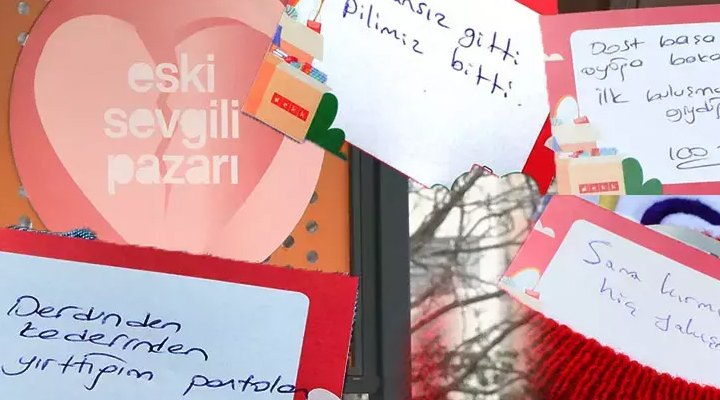 eski
sevgili
pazarı
gitti
pilimiz bitti.
Dost başa
ayağa
ilk buluşma
100
Derdinden
kederinden
yırttığım pantolon
Sana
hiç